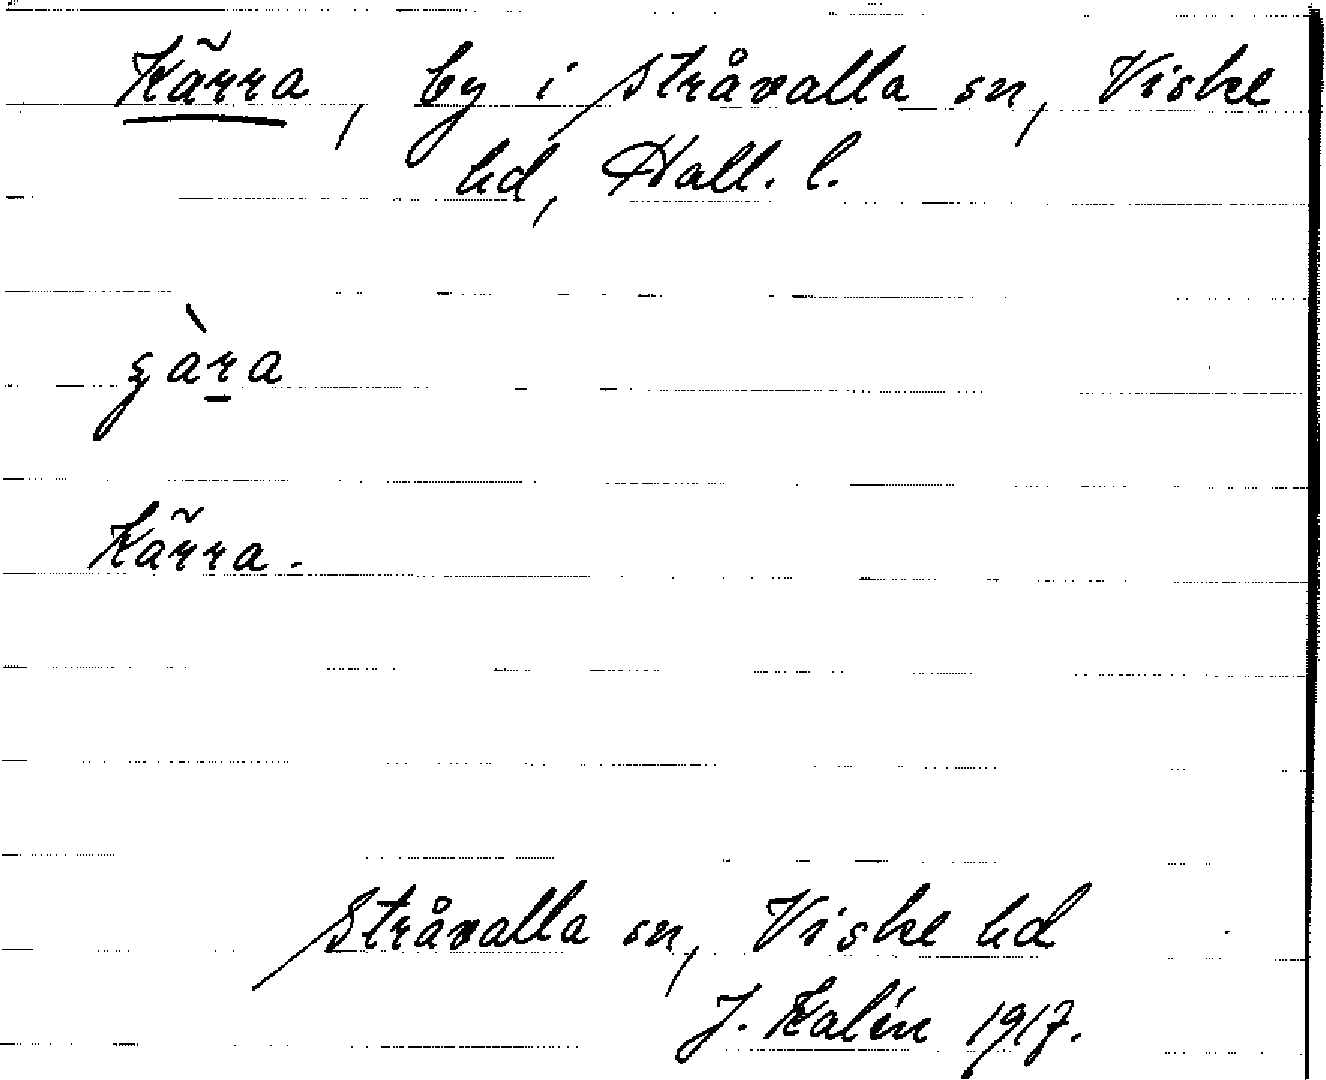 Kärra, by i Stråvalla sn, Viske
hd, Hall. l.
Kärra.
Stråvalla sn, Viske hd
J. Kalén 1917.